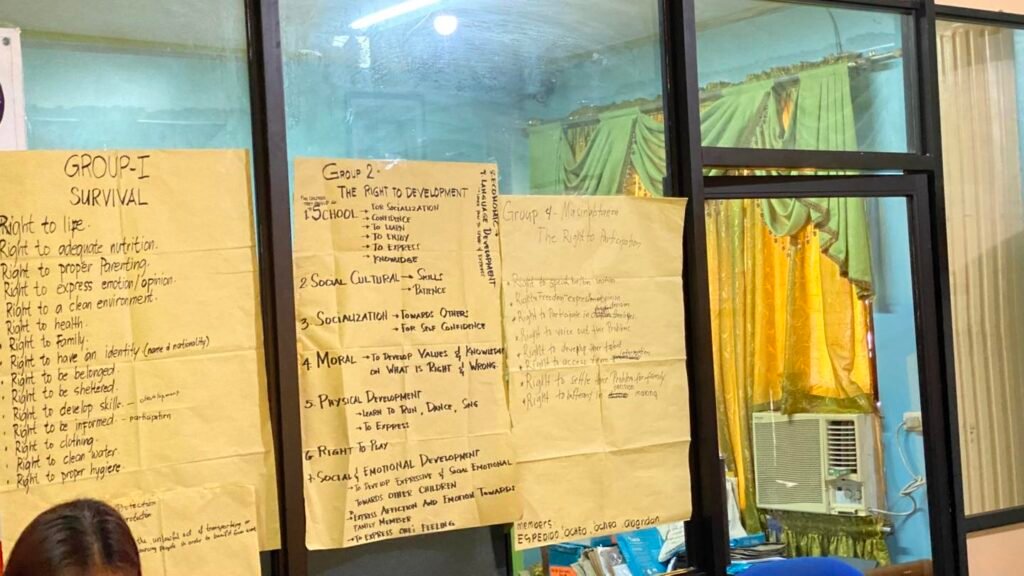 GROUP-I
SURVIVAL
Right to life.
Right to adequate nutrition.
Right to proper Parenting.
Right to express emotion/opinion
Right to a clean environment.
Right to health.
Right to Family.
Right to have an identity (name & nationality)
Right to be belonged
Right to be sheltered.
Right to develop skills. - development
Right to be informed. - participation
Right to clothing.
Right to clean water
Right to proper hygiene.
GROUP 2-
THE RIGHT TO DEVELOPMENT
1. SCHOOL → FOR SOCIALIZATION
→ CONFIDENCE
→ TO LEARN
→ TO ENJOY
→ TO EXPRESS
→ KNOWLEDGE
2. SOCIAL CULTURAL → SKILLS
→ PATIENCE
3. SOCIALIZATION → TOWARDS OTHERS
→ FOR SELF CONFIDENCE
4. MORAL → TO DEVELOP VALUES & KNOWLEDGE
ON WHAT IS RIGHT & WRONG.
5. PHYSICAL DEVELOPMENT
→ LEARN TO RUN, DANCE, SING
→ TO EXPRESS
6. RIGHT TO PLAY
7. SOCIAL & EMOTIONAL DEVELOPMENT
→ TO DEVELOP EXPRESSIVE & SOCIAL EMOTIONAL
TOWARDS OTHER CHILDREN
→ EXPRESS AFFECTION AND EMOTION TOWARDS
FAMILY MEMBER
→ TO EXPRESS ONE'S FEELING
8. ECONOMIC
9. LANGUAGE DEVELOPMENT
Group 4-
The Right to Participation
Right to
Right Freedom
Right to Participate in
Right to voice out their Problems
Right to develop their talent
Right to access
information
Right to settle their Problem
Right to
decision
making
members:
ESPEDIDO,